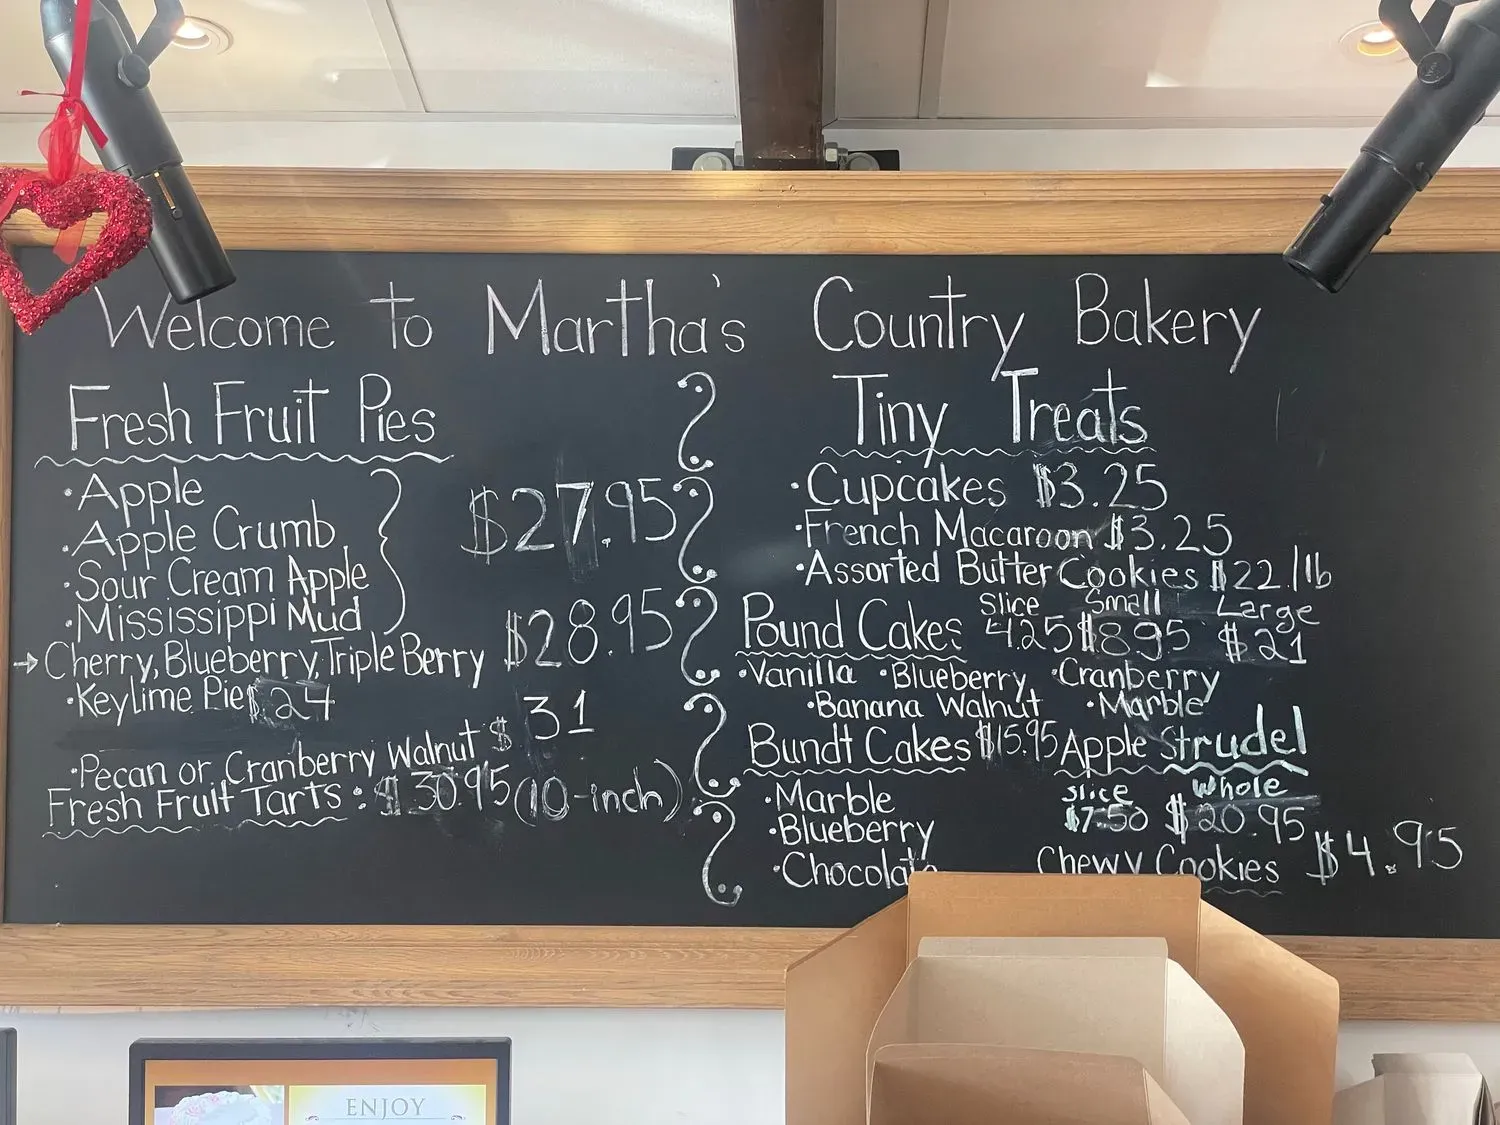 Welcome to Martha's Country Bakery
Fresh Fruit Pies
•Apple
•Apple Crumb
•Sour Cream Apple
•Mississippi Mud
$27.95
→Cherry, Blueberry, Triple Berry $28.95
•Keylime Pie $24
•Pecan or Cranberry Walnut $31
Fresh Fruit Tarts: $30.95 (10-inch)
Tiny Treats
•Cupcakes $3.25
•French Macaroon $3.25
•Assorted Butter Cookies $22./lb
Slice Small Large
Pound Cakes 4.25 $8.95 $21
•Vanilla •Blueberry •Cranberry
•Banana Walnut •Marble
Bundt Cakes $15.95
•Marble
•Blueberry
•Chocolate
Apple Strudel
Slice Whole
$7.50 $20.95
Chewy Cookies $4.95
ENJOY